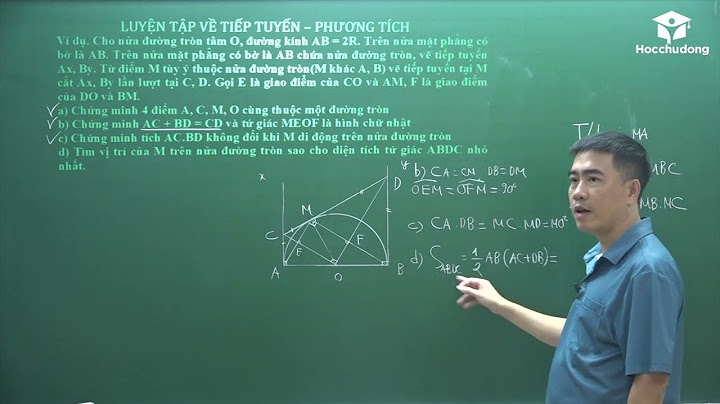 LUYỆN TẬP VỀ TIẾP TUYẾN – PHƯƠNG TÍCH
Hocchudong
Ví dụ. Cho nửa đường tròn tâm O, đường kính AB = 2R. Trên nửa mặt phẳng có
bờ là AB. Trên nửa mặt phẳng có bờ là AB chứa nửa đường tròn, vẽ tiếp tuyến
Ax, By. Từ điểm M tùy ý thuộc nửa đường tròn(M khác A, B) vẽ tiếp tuyến tại M
cắt Ax, By lần lượt tại C, D. Gọi E là giao điểm của CO và AM, F là giao điểm
của DO và BM.
a) Chứng minh 4 điểm A, C, M, O cùng thuộc một đường tròn
b) Chứng minh AC + BD = CD và tứ giác MEOF là hình chữ nhật
c) Chứng minh tích AC.BD không đổi khi M di động trên nửa đường tròn
d) Tìm vị trí của M trên nửa đường tròn sao cho diện tích tứ giác ABDC nhỏ
nhất.
MA
MBC
MB.MC
x
y
D
M
C
E
F
A
O
B
b) CA = CM DB = DM
OEM = OFM = 90°
c) CA.DB = MC.MD = MO²
d) S ABDC = 1/2 AB(AC+DB) =